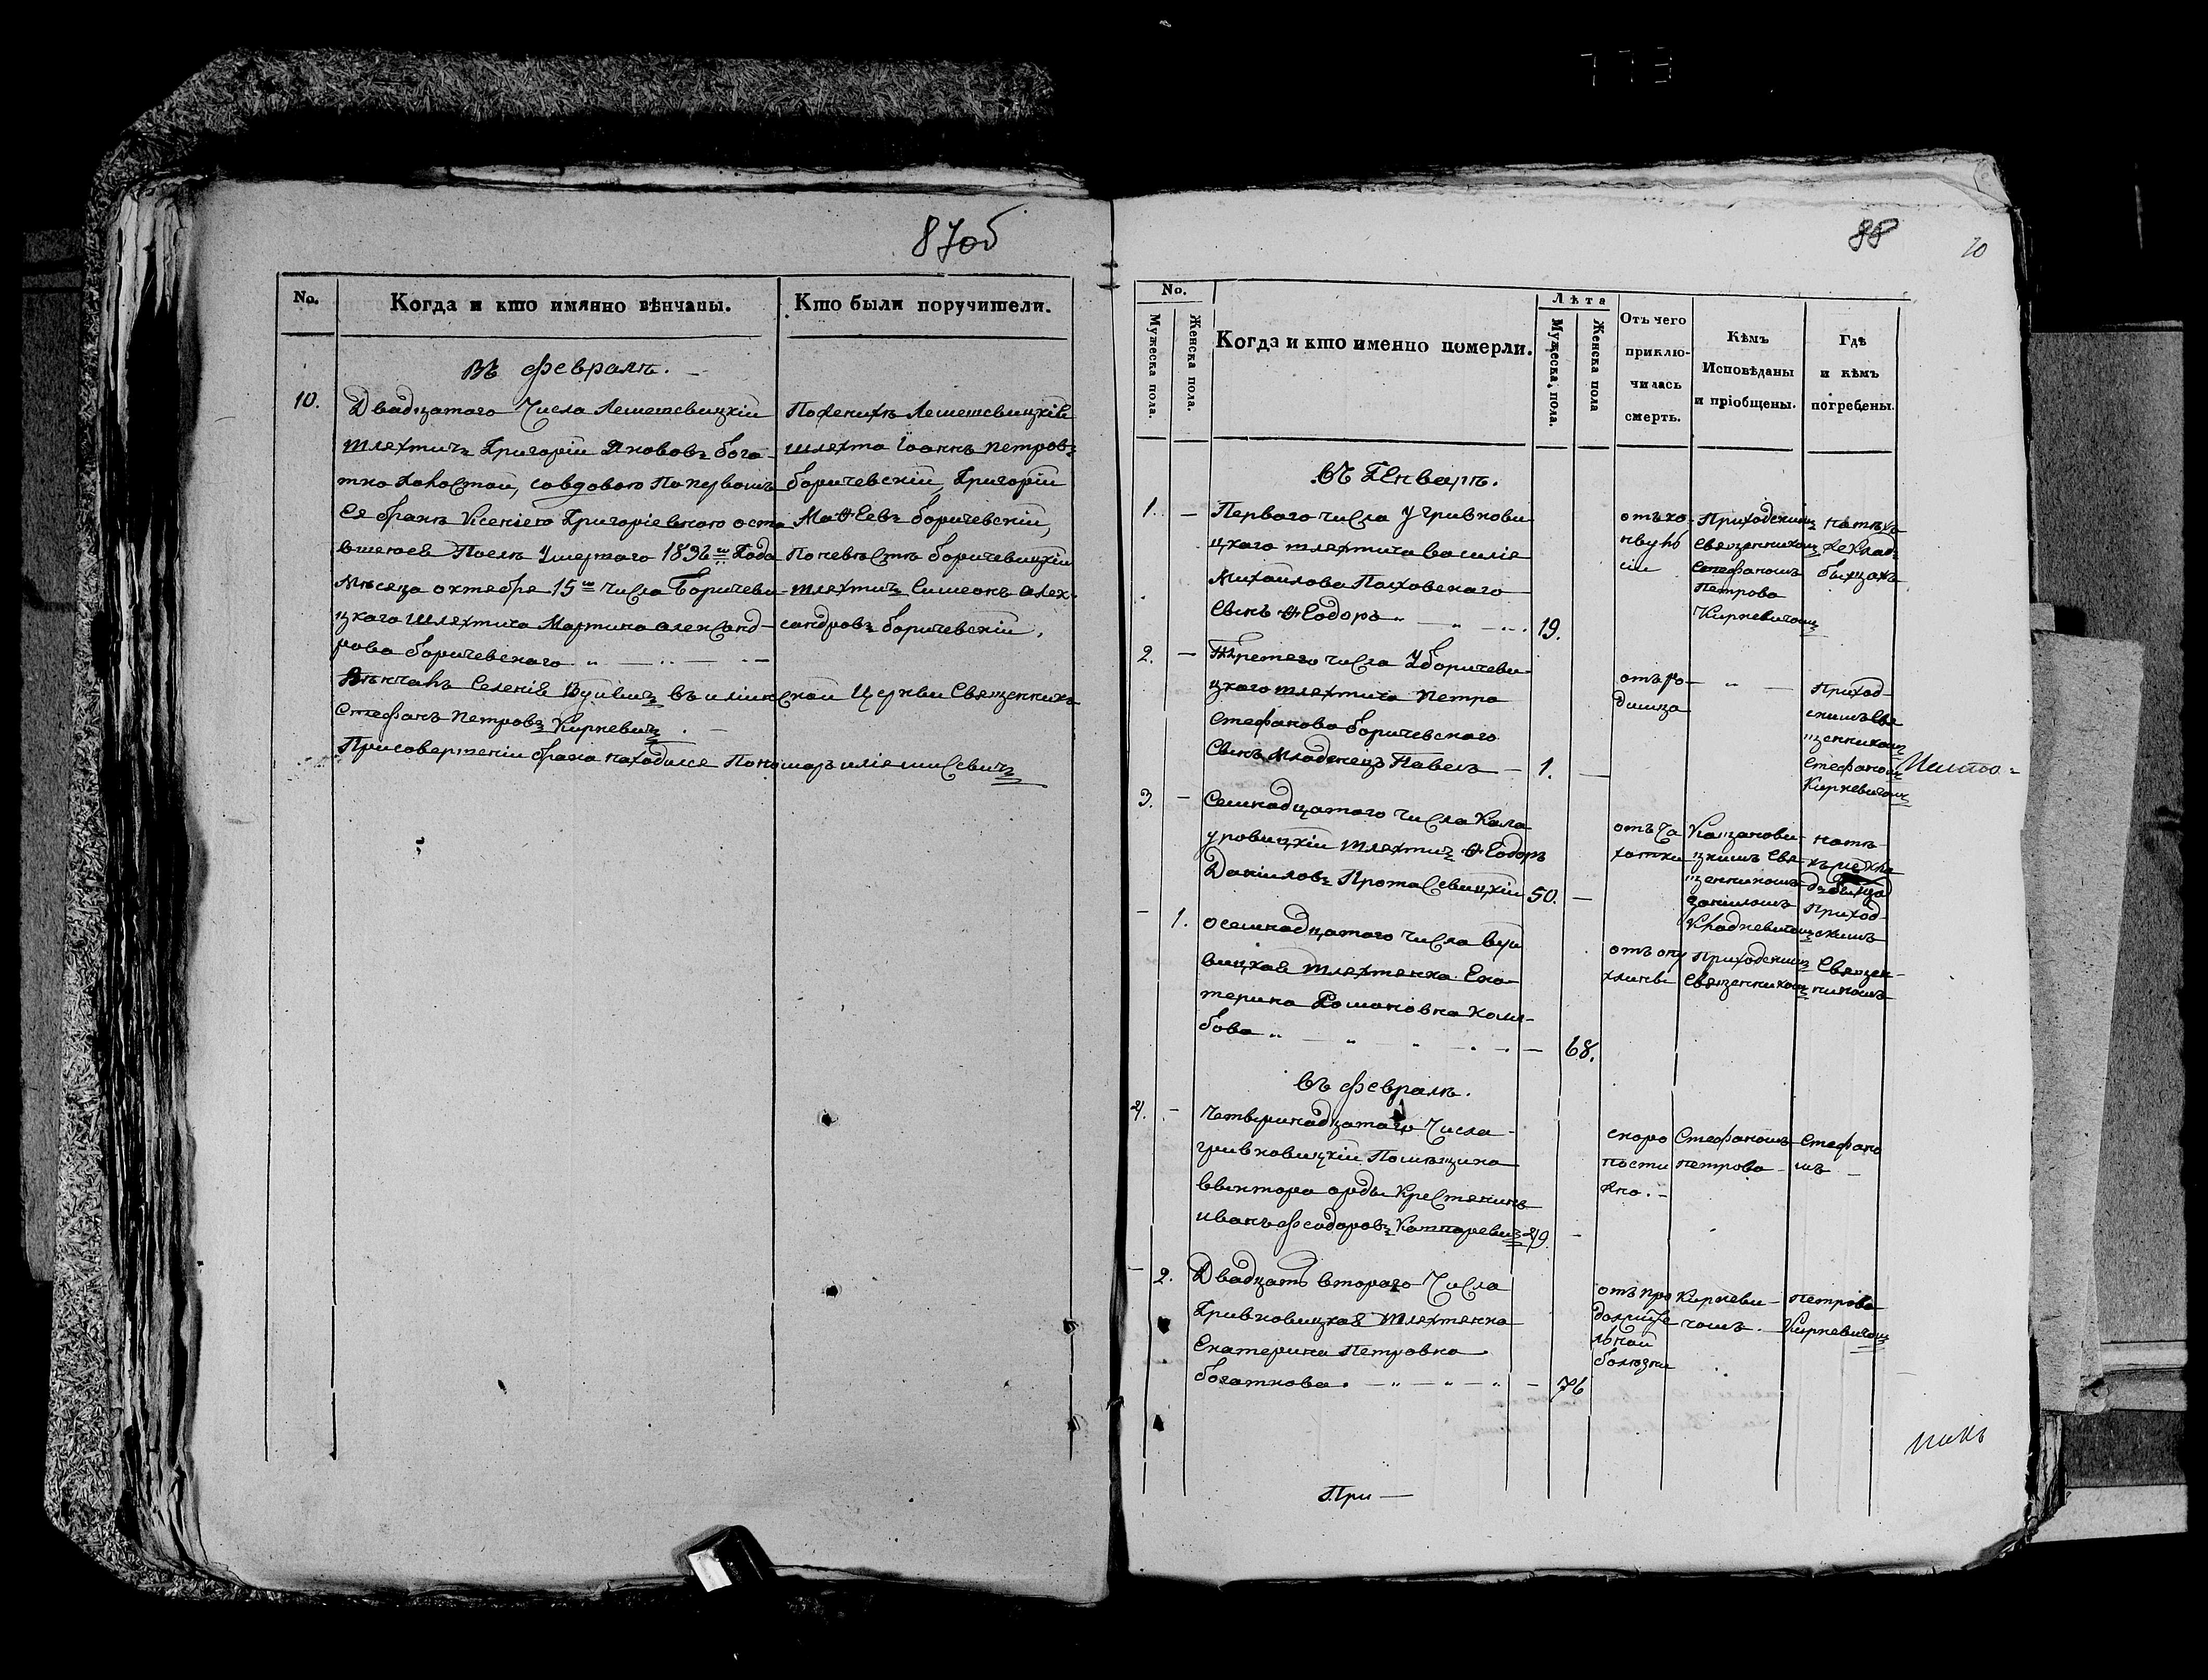 87об
No.
Когда и кто имянно вѣнчаны.
Кто были поручители.
Въ февралѣ.
10.
Двадцатаго Числа Лемешевицкій
шляхтичъ Григорій Якововъ бога-
тко холостой, совдовою Попервомъ
Ея бракѣ Ксеніею Григоріевною оста
вшеюся Послѣ Умершаго 1832го Года
Мѣсяца октебря 15го числа Боричеви-
цкаго шляхтича Мартина александ-
рова боричевскаго
Пожених Лемешевицкія
шляхта Іоаннъ Петровъ
боричевскій, Григорій
Маѳѣевъ боричевскій,
Поневѣстѣ боричевицкій
шляхтич Симеонъ алех-
сандровъ боричевскій,
Вѣнчалъ Селенія Вуйвичъ въ илінской Церкви Священникъ
Стефанъ Петровъ Киркевичъ
Присовершеніи брака находился Пономарь илія
88
10
No.
Мужеска пола.
Женска пола.
Когда и кто именно померли.
Лѣта
Мужеска, пола.
Женска пола
Отъ чего
приклю-
чилась
смерть.
Кѣмъ
Исповѣданы
и пріобщены.
Гдѣ
и кѣмъ
погребены.
Въ Генварѣ.
1. —
Первого числа У гривкови
цкаго шляхтича василія
Михайлова Полховскаго
Сынъ Ѳеодоръ
19.
Приходскимъ
Священникомъ
Стефаномъ
Петрова
Киркевичомъ
натѣхъ
же клад-
бищахъ
2. —
Третего числа Уборичеви-
цкаго шляхтича Петра
Стефанова боричевскаго
Сынъ младенецъ Павелъ
1. —
отъ ро-
димца
Приход-
скимъ Свя
щенникомъ
Стефаномъ
Киркевичомъ
3. —
Семнадцатого числа Кала
уровицкій шляхтичъ Ѳеодоръ
Даніиловъ Протасевицкій
50. —
отъ Ча
хотки
цкимъ Свя-
щенникомъ
Приход-
скимъ
— 1.
осемнадцатого числа вуй
вицкая шляхтянка Ека-
терина Романовна Коля-
бова
68.
отъ опу
хлины
Приходскимъ
Священникомъ
Священ-
никомъ
Въ февралѣ.
4. —
Четвернадцатаго Числа
гривковицкій Помѣщика
виктора орды Крестянинъ
иванъ Феодоровъ
49. —
скоро
постижно. —
Стефаномъ
Петрова
Стефано
мъ —
— 2.
Двадцать второго Числа
Гривковицкая Шляхтянка
Екатерина Петровна
богаткова.
76
отъ про
должите
льной
болѣзни
Киркеви-
чомъ.
Петрова
Киркевичомъ
При —